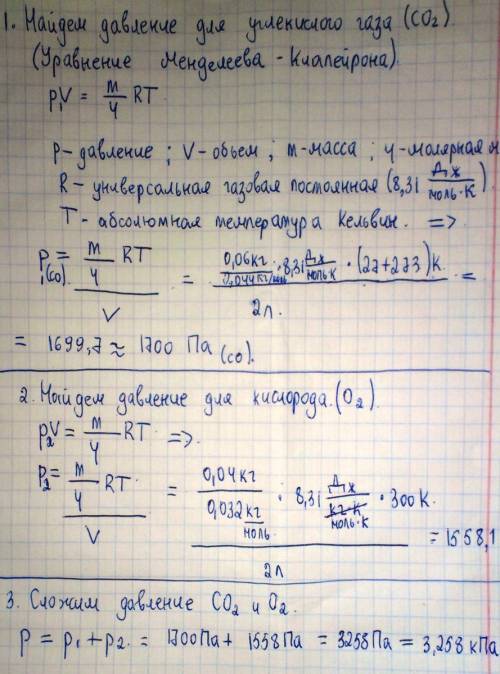 1. Найдем давление для углекислого газа (CO₂).
(Уравнение Менделеева - Клапейрона).
p₁V = m/μ RT
p - давление ; V - объем ; m - масса ; μ - молярная м
R - универсальная газовая постоянная (8,31 Дж/моль·К)
T - абсолютная температура Кельвин. =>
p₁(co) = m/μ RT / V = 0,06кг/0,044кг/моль · 8,31 Дж/моль·К · (27+273)К / 2л. =
= 1699,7 ≈ 1700 Па (co).
2. Найдем давление для кислорода. (O₂).
p₂V = m/μ RT =>.
p₂ = m/μ RT / V = 0,04кг/0,032кг/моль · 8,31 Дж/моль·К · 300К / 2л = 1558,1
3. Сложим давление CO₂ и O₂.
p = p₁ + p₂ = 1700Па + 1558Па = 3258Па = 3,258 кПа